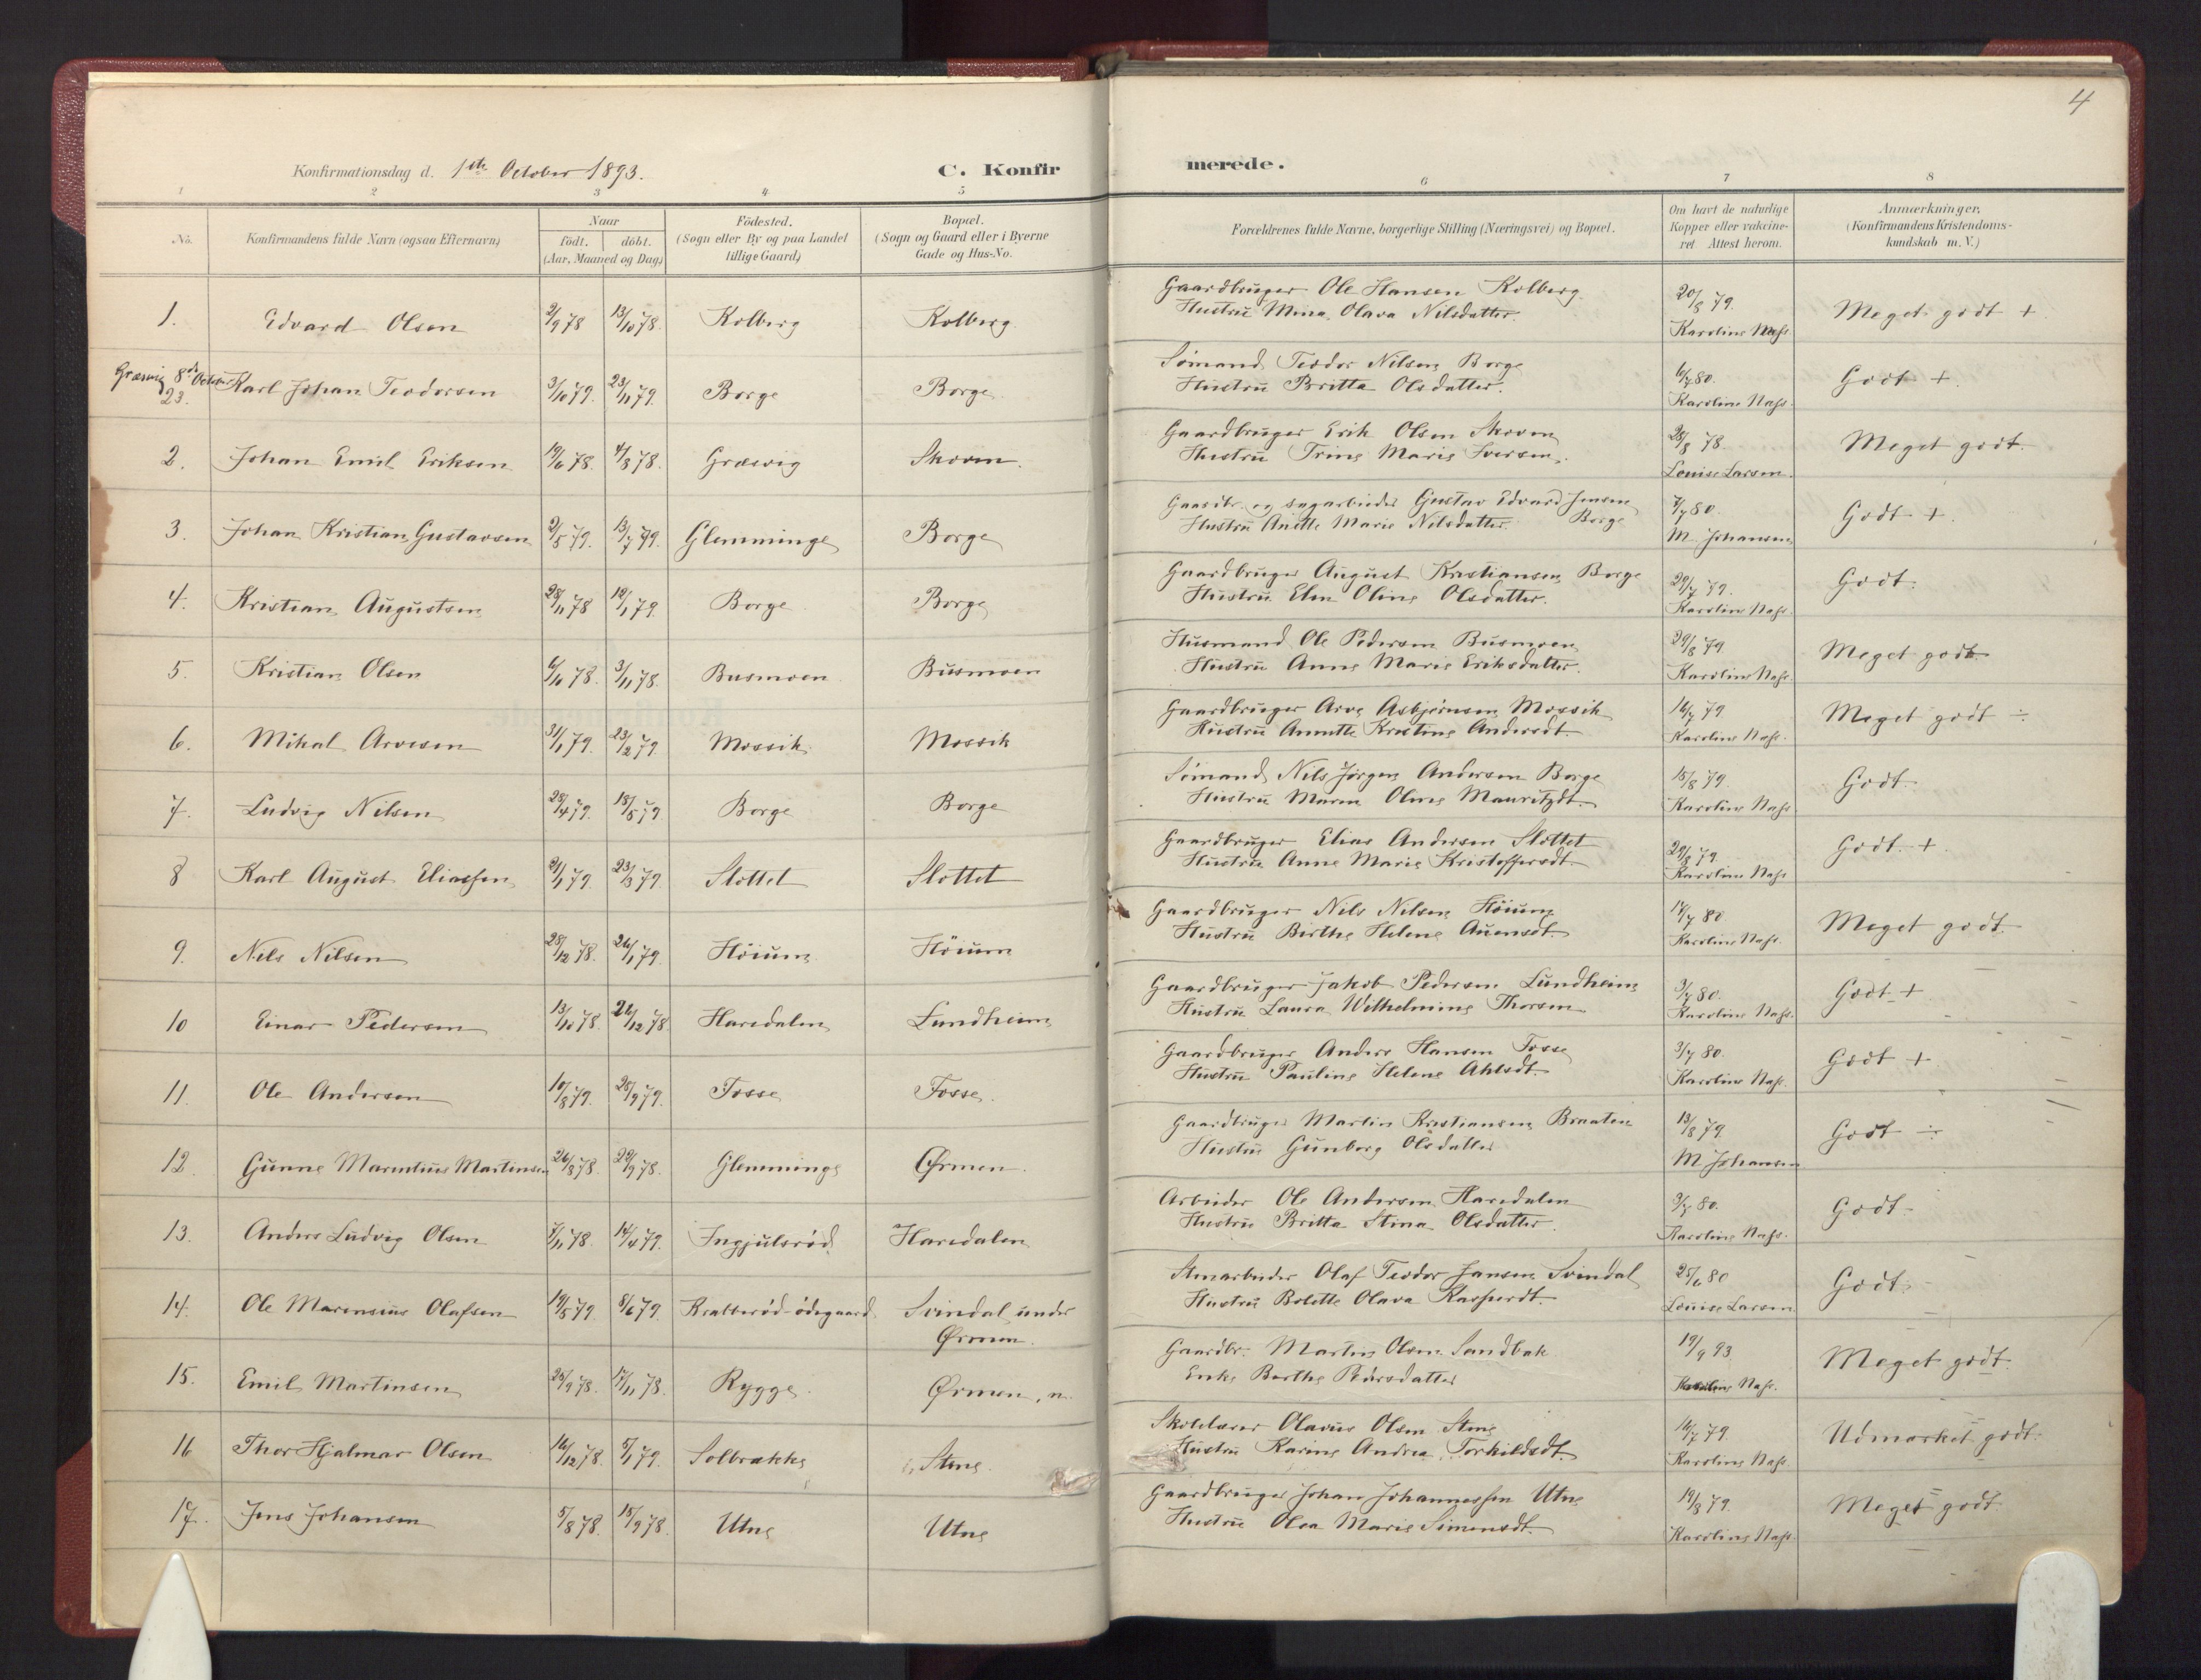 4
Konfirmationsdag d. 1ste October 1893.
C. Konfirmerede.
1 2 3 4 5 6 7 8
No.
Konfirmandens fulde Navn (ogsaa Efternavn)
Naar
födt. döbt.
(Aar, Maaned og Dag)
Födested.
(Sogn eller By og paa Landet
tillige Gaard)
Bopæl.
(Sogn og Gaard eller i Byerne
Gade og Hus-No.
Forældrenes fulde Navne, borgerlige Stilling (Næringsvei) og Bopæl.
Om havt de naturlige
Kopper eller vaccine-
ret Attest herom.
Anmærkninger,
(Konfirmandens Kristendoms-
kundskab m. V.)
1. Edvard Olsen 2/9 78 13/10 78. Kolberg Kolberg.
Gaardbruger Ole Hansen Kolberg.
Hustru Mina Olava Nilsdatter.
20/8 79.
Karoline Nafs
Meget godt +.
Græsvig 8de October
23. Karl Johan Teodorsen 3/10 79. 23/11 79. Borge Borge.
Sømand Teodor Nilsen Borge
Hustru Britta Olsdatter.
6/7 80.
Karoline Nafs.
Godt +.
2. Johan Emil Eriksen 19/6 78. 4/8 78. Græsvig Skoven.
Gaardbruger Erik Olsen Skoven
Hustru Trine Marie Iversen.
28/8 78.
Louise Larsen.
Meget godt.
3. Johan Kristian Gustavsen 2/5 79. 13/7 79. Glemminge Borge
Gaardbr. og sagarbeider Gustav Edvard Jensen
Hustru Anette Marie Nilsdatter. Borge
7/7 80.
M. Johansen.
Godt +.
4. Kristian Augustsen 28/11 78 12/1 79. Borge Borge
Gaardbruger August Kristiansen Borge
Hustru Elen Oline Olsdatter.
29/7 79.
Karoline Nafs.
Godt.
5. Kristian Olsen 6/10 78. 3/11 78. Busmoen Busmoen
Husmand Ole Pedersen Busmoen
Hustru Anne Marie Eriksdatter.
29/8 79.
Karoline Nafs.
Meget godt.
6. Mikal Arvesen 31/1 79. 23/2 79. Mossik Mossik
Gaardbruger Arve Asbjørnsen Mossik
Hustru Annette Kristine Andersdt.
16/7 79
Karoline Nafs.
Meget godt ÷
7. Ludvig Nilsen 28/4 79. 18/5 79 Borge Borge
Sømand Nils Jørgen Andersen Borge
Hustru Maren Oline Mauritzdt.
15/8 79.
Karoline Nafs
Godt.
8 Karl August Eliassen 21/1 79. 23/3 79. Slottet Slottet
Gaardbruger Elias Andersen Slottet
Hustru Anne Marie Kristoffersdt.
29/8 79.
Karoline Nafs
Godt. +.
9. Nils Nilsen 28/12 78. 26/1 79. Höium Höium
Gaardbruger Nils Nilsen Höium
Hustru Birthe Helene Auensdt.
14/7 80
Karoline Nafs.
Meget godt.
10 Einar Pedersen 13/10 78. 26/12 78 Haredalen Lundheim
Gaardbruger Jakob Pedersen Lundheim
Hustru Laura Wilhelmine Thorsen
3/7 80.
Karoline Nafs.
Godt +
11. Ole Andersen 10/8 79. 28/9 79. Fosse Fosse.
Gaardbruger Anders Hansen Fosse
Hustru Pauline Helene Ahlsdt.
3/7 80.
Karoline Nafs.
Godt +
12. Gunne Marentius Martinsen 26/8 78. 29/9 78. Glemminge Ørmen.
Gaardbruger Martin Kristiansen Braaten
Hustru Gunborg Olsdatter
13/8 79.
M Johansen
Godt ÷
13. Anders Ludvig Olsen 7/11 78. 14/4 79. Ingjulsrød Haredalen
Arbeider Ole Andersen Haredalen
Hustru Britta Stina Olsdatter.
3/7 80.
Karoline Nafs.
Godt.
14. Ole Marensius Olafsen 19/5 79. 8/6 79. Krabberød-ödegaard. Svindal under
Ørmen.
Stenarbeider Olaf Teodor Jansen Svindal
Hustru Bolette Olava Kaspersdt.
25/6 80
Louise Larsen
Godt.
15. Emil Martinsen 25/9 78. 17/11 78. Rygge. Ørmen, n.
Gaardbr. Martin Olsen Sandbæk
Enke Berthe Pedersdatter
19/9 93.
Karoline Nafs.
Meget godt.
16 Thor Hjalmar Olsen 16/12 78. 5/1 79. Solbrække Stene.
Skolelærer Olavus Olsen Stene
Hustru Karine Andrea Torkildsdt.
16/7 79
Karoline Nafs.
Udmærket godt.
17. Jens Johansen 5/8 78. 15/9 78. Utne Utne
Gaardbruger Johan Johannessen Utne
Hustru Olea Marie Simensdt.
19/8 79.
Karoline Nafs.
Meget godt.